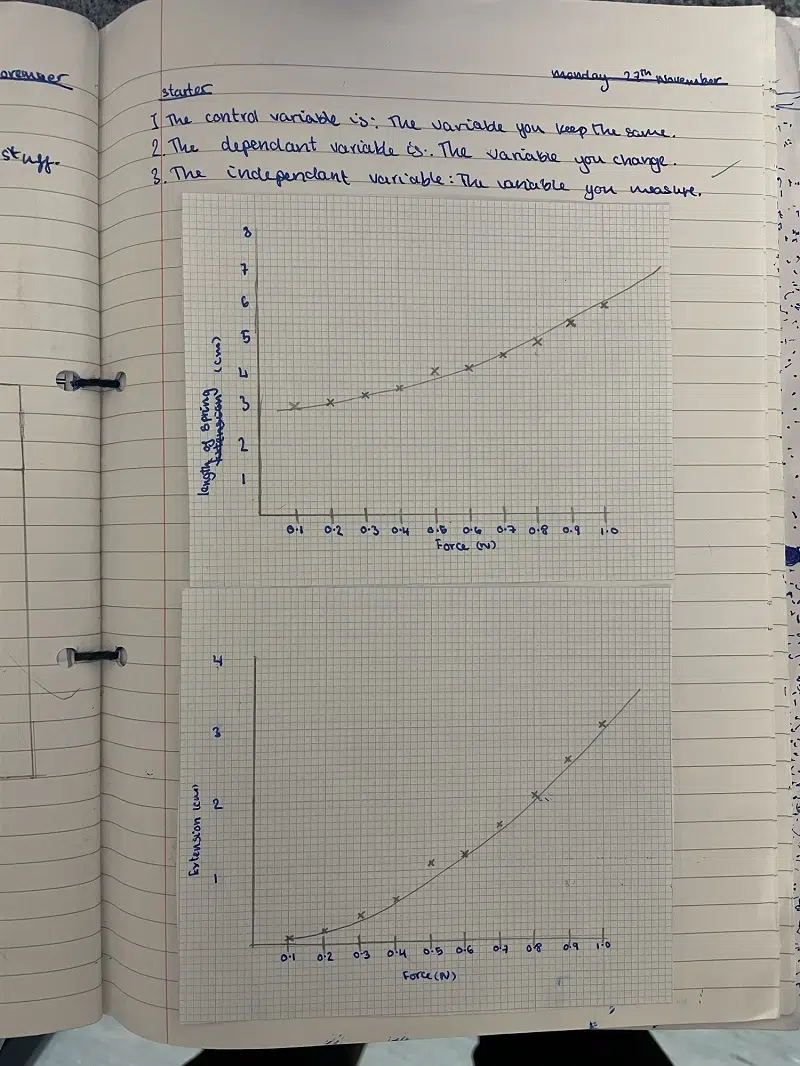 Monday 27th November
starter
1 The control variable is: The variable you keep the same.
2. The dependant variable is: The variable you change.
3. The independant variable: The variable you measure.
stuff.
8
7
6
5
4
3
2
1
length of spring (cm)
extension
0.1 0.2 0.3 0.4 0.5 0.6 0.7 0.8 0.9 1.0
Force (N)
4
3
2
1
Extension (cm)
0.1 0.2 0.3 0.4 0.5 0.6 0.7 0.8 0.9 1.0
Force (N)